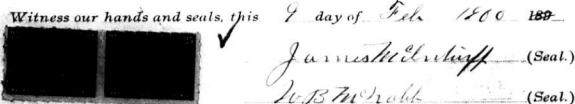 Witness our hands and seals, this 9 day of Feb 1800 189
James McInturff (Seal.)
W B McNabb (Seal.)